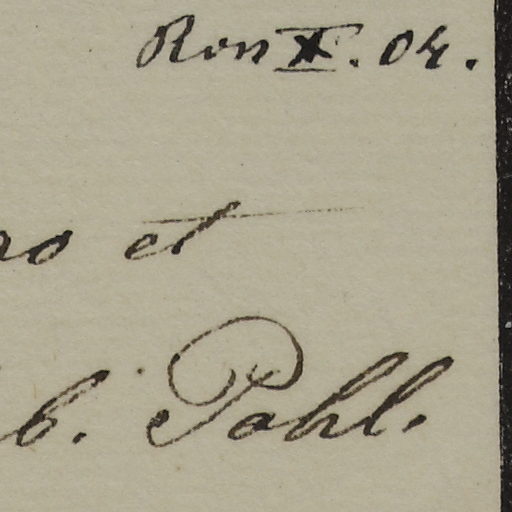 Ros X. 04.
et
b. Pohl.